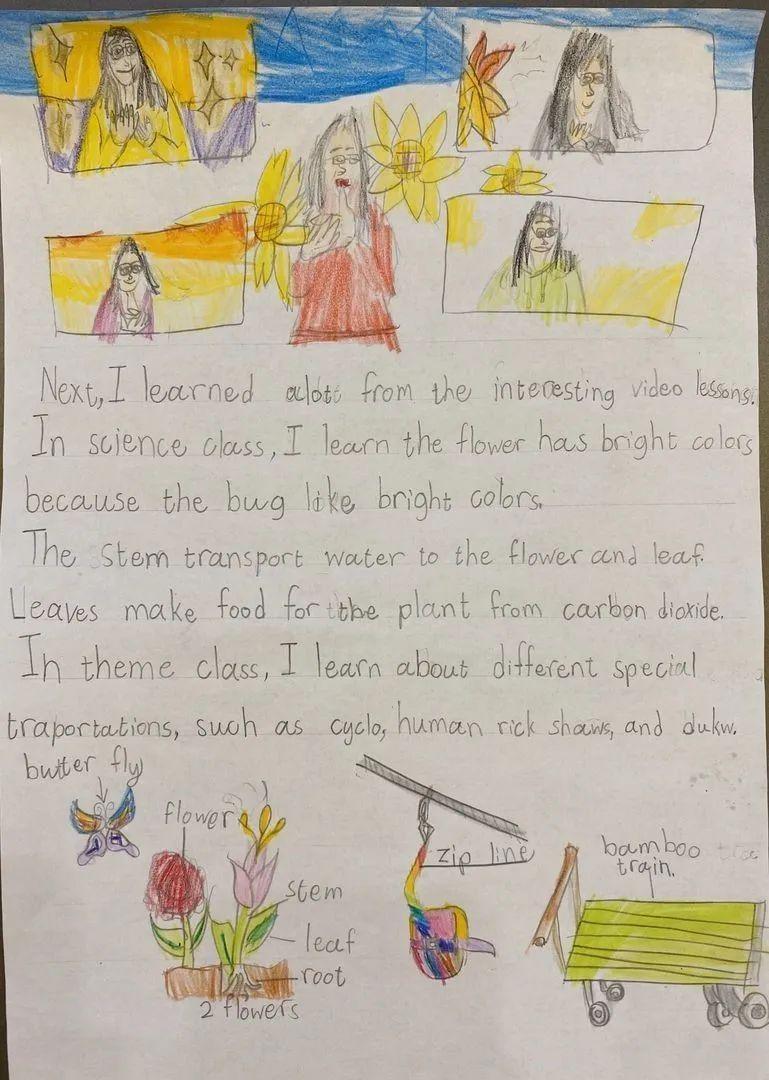 Next, I learned alot from the interesting video lessons.
In science class, I learn the flower has bright colors
because the bug like bright colors.
The stem transport water to the flower and leaf.
Leaves make food for the plant from carbon dioxide.
In theme class, I learn about different special
traportations, such as cyclo, human rick shaws, and dukw.
butter fly
flower
zip line
bamboo
train.
stem
leaf
root
2 flowers